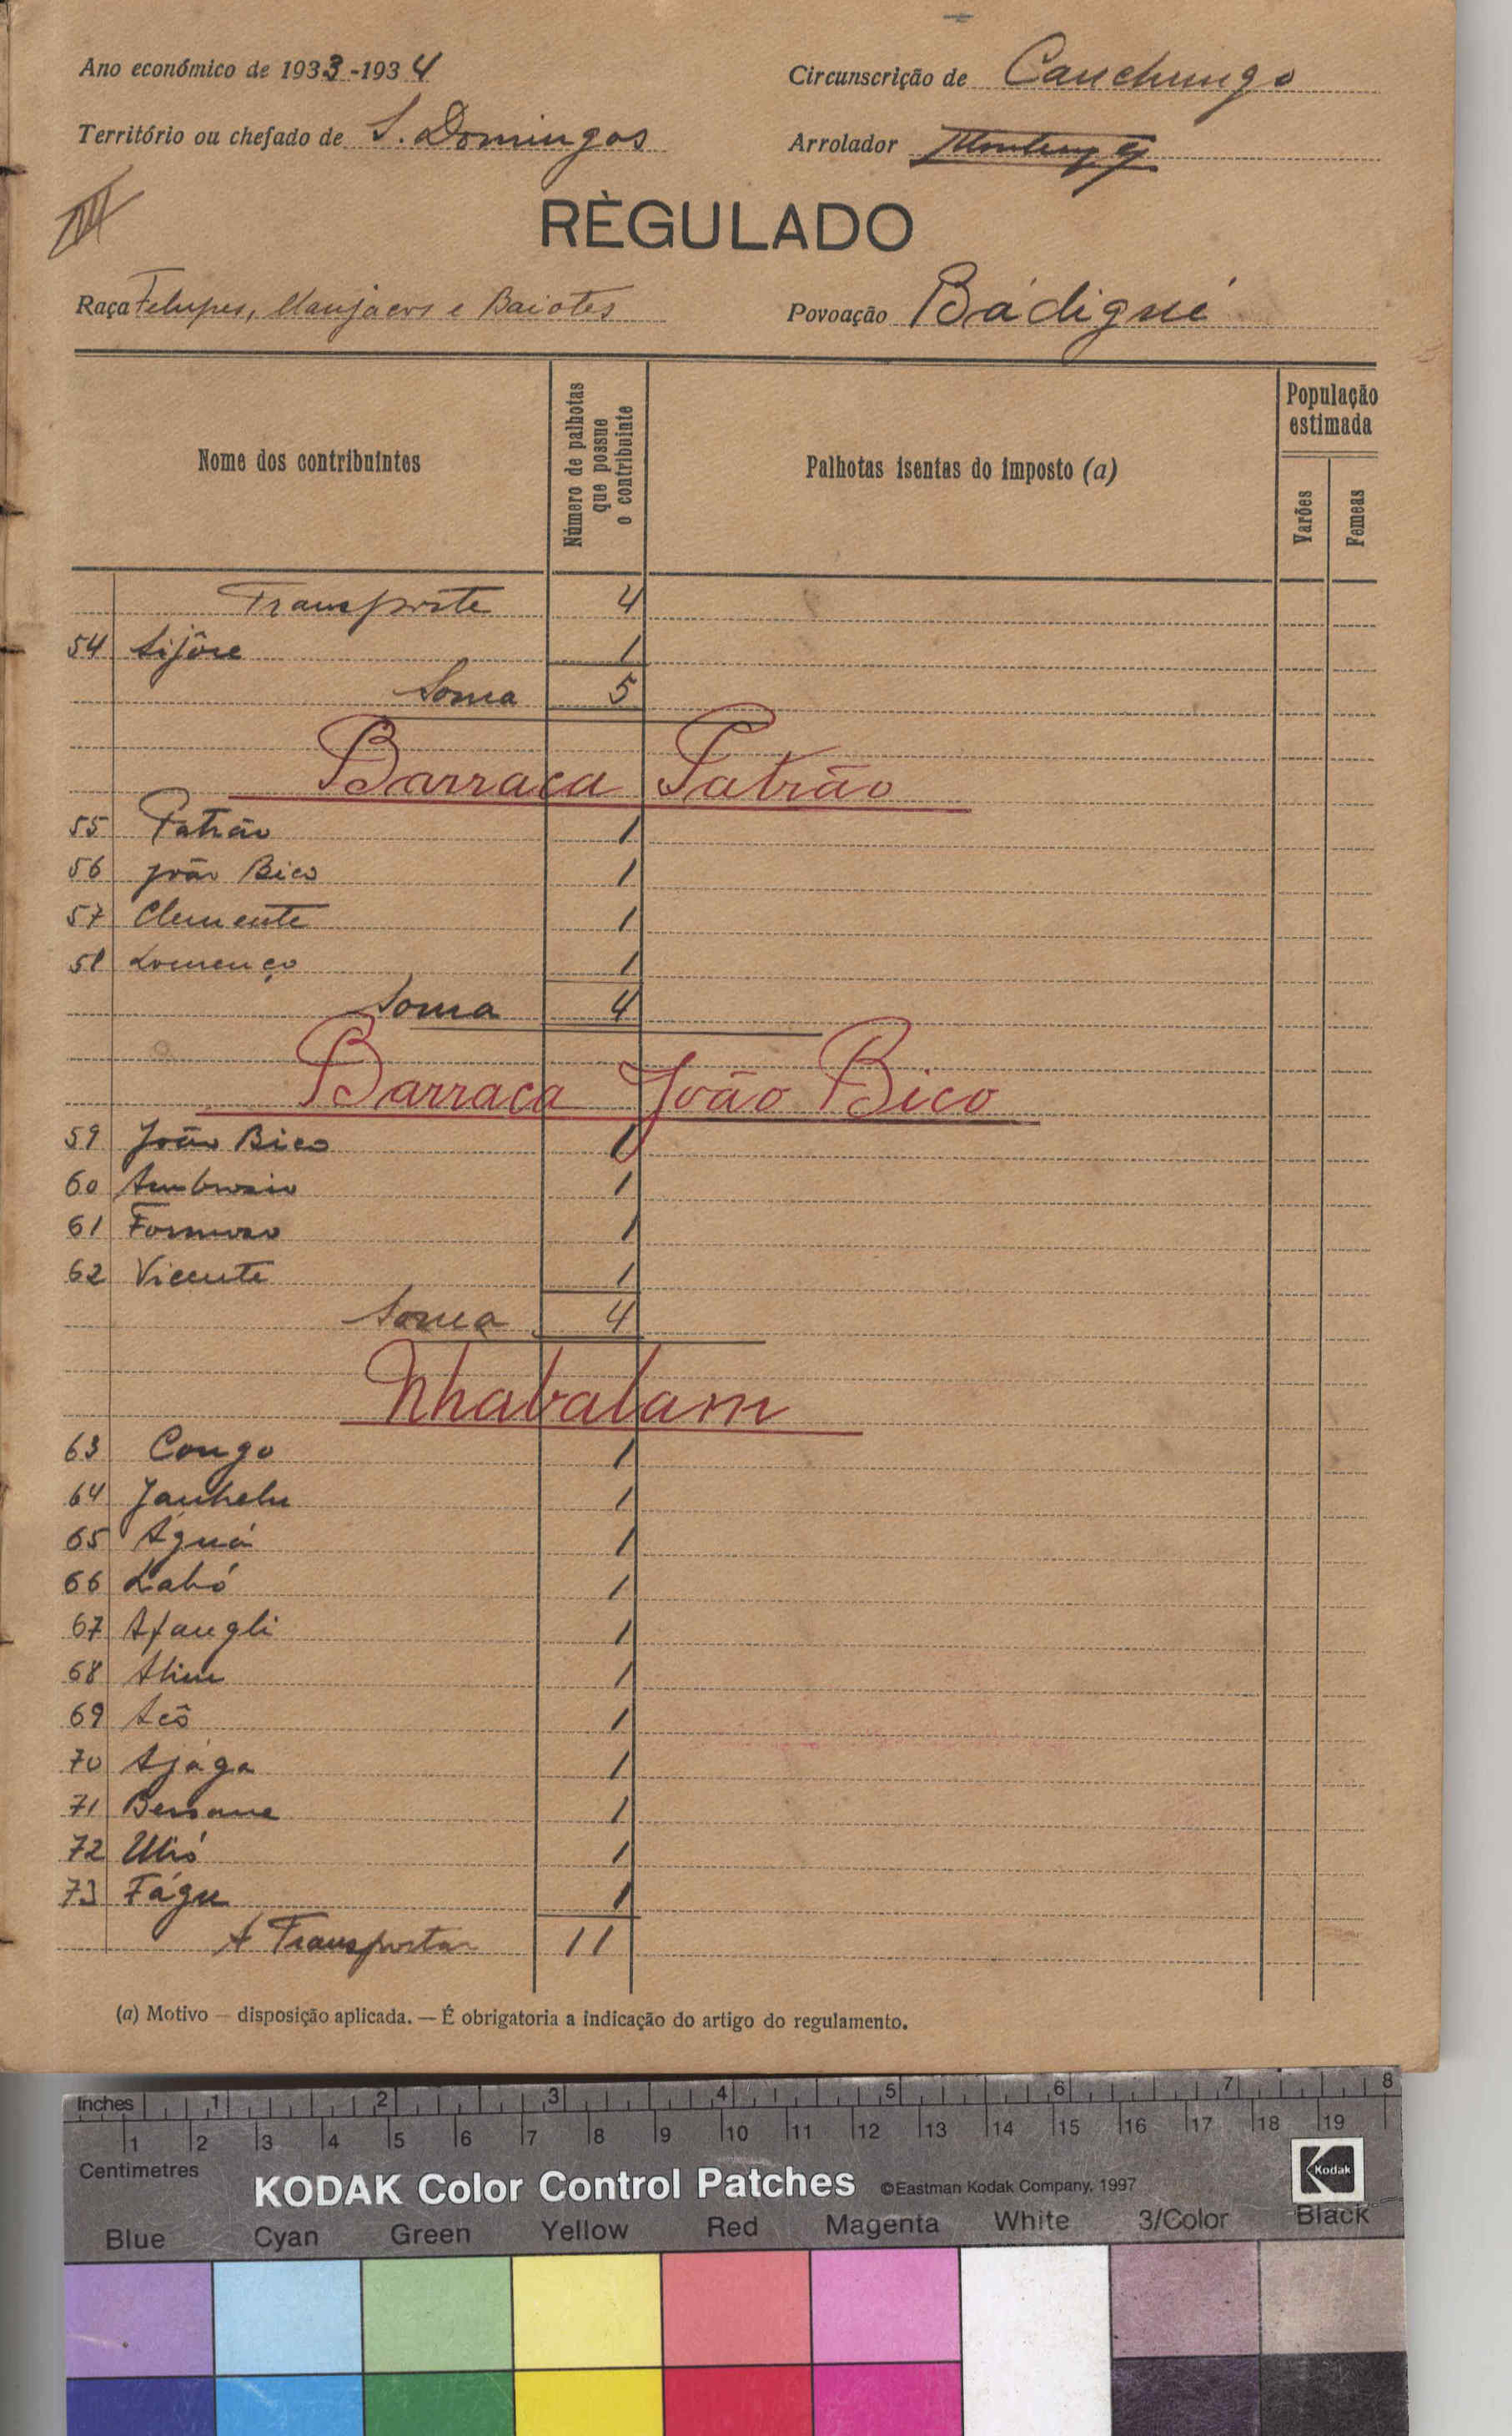 Ano económico de 1933-1934
Circunscrição de Cauchungo
Território ou chefado de S. Domingos
Arrolador
RÈGULADO
Raça Felupes, Manjacos e Baiotes
Povoação Bádigué
Nome dos contribuintes
Número de palhotas que possue o contribuinte
Palhotas isentas do imposto (a)
População estimada
Varões
Femeas
Transporte 4
54 Sijôre 1
Soma 5
Barraca Patrão
55 Patrão 1
56 João Bico 1
57 Clemente 1
58 Lourenço 1
Soma 4
Barraca João Bico
59 João Bico 1
60 Ambrosio 1
61 Formoso 1
62 Vicente 1
Soma 4
Nhabalam
63 Congo 1
64 Janhelu 1
65 Águá 1
66 Labó 1
67 Afangli 1
68 1
69 Acô 1
70 Ajága 1
71 Bessane 1
72 1
73 Fágu 1
A Transportar 11
(a) Motivo — disposição aplicada. — É obrigatoria a indicação do artigo do regulamento.
Inches 1 2 3 4 5 6 7 8
1 2 3 4 5 6 7 8 9 10 11 12 13 14 15 16 17 18 19
Centimetres
KODAK Color Control Patches ©Eastman Kodak Company, 1997 Kodak
Blue Cyan Green Yellow Red Magenta White 3/Color Black